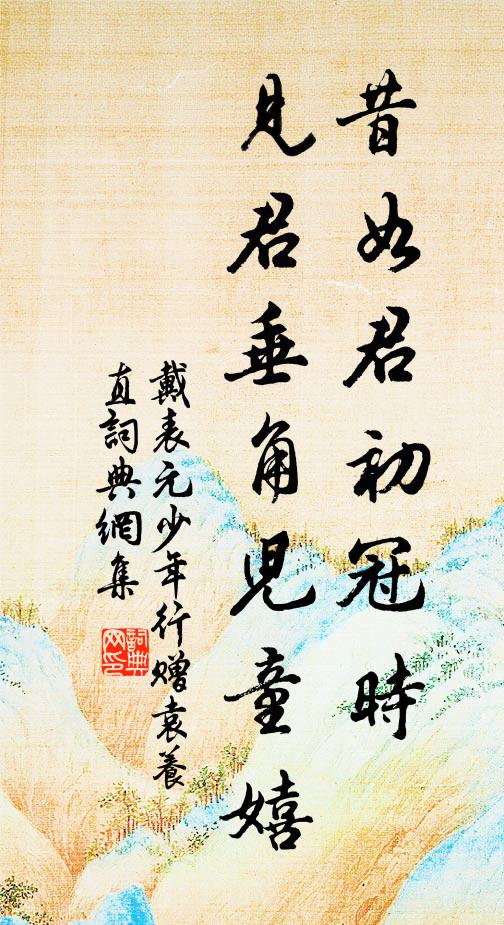 昔如君初冠時
見君垂角兒童嬉
戴表元少年行贈袁養
直詞典網集
詞典網印